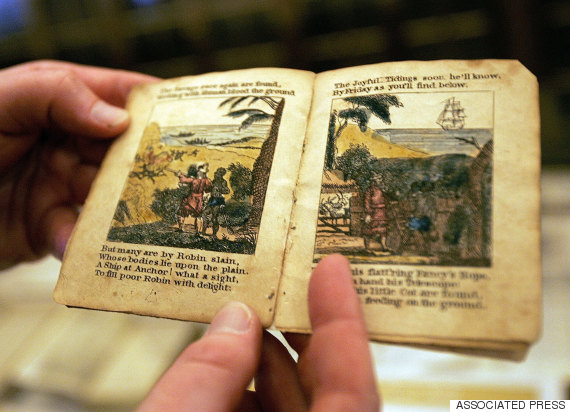 The Savage once again are found,
Moving with Human blood the ground
But many are by Robin slain,
Whose bodies lie upon the plain.
A Ship at Anchor! what a sight,
To fill poor Robin with delight:
The Joyful Tidings soon he'll know,
By Friday as you'll find below.
his flatt'ring Fancy's Hope,
hand his Telescope
his little Cot are found,
feeding on the ground.
ASSOCIATED PRESS